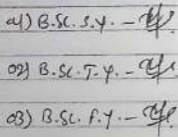 01) B.Sc. S.Y. -
02) B.Sc. T.Y. -
03) B.Sc. F.Y. -